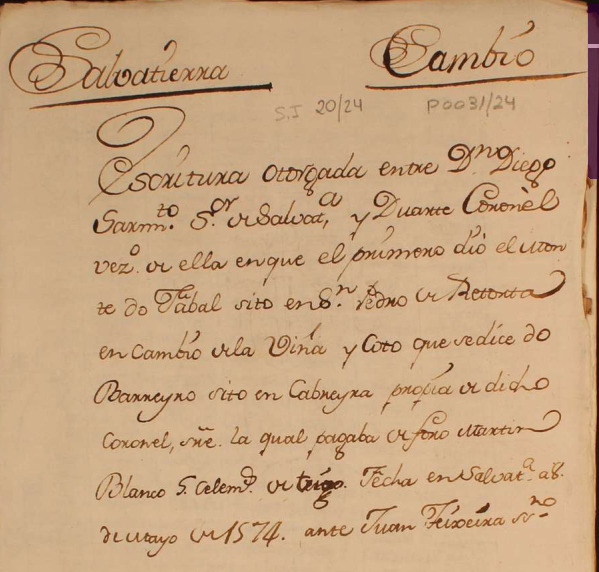 Salvatierra Cambio
S.J 20/24 P0031/24
Escritura otorgada entre Dn. Diego
Sarmto. Sor. de Salvata, y Duarte Coronèl
vezo. de ella en que el primero dió el Mon
te do Tabal sito en Sn. Pedro de Retorta
en Cambio de la Viña y Coto que se dice do
Barreyro sito en Cabreyra propia de dicho
Coronel, sre. la qual pagaba de foro Martin
Blanco 5. celemd. de trigo. Fecha en Salvata. a 8.
de Mayo de 1574. ante Juan Teixeira Srno